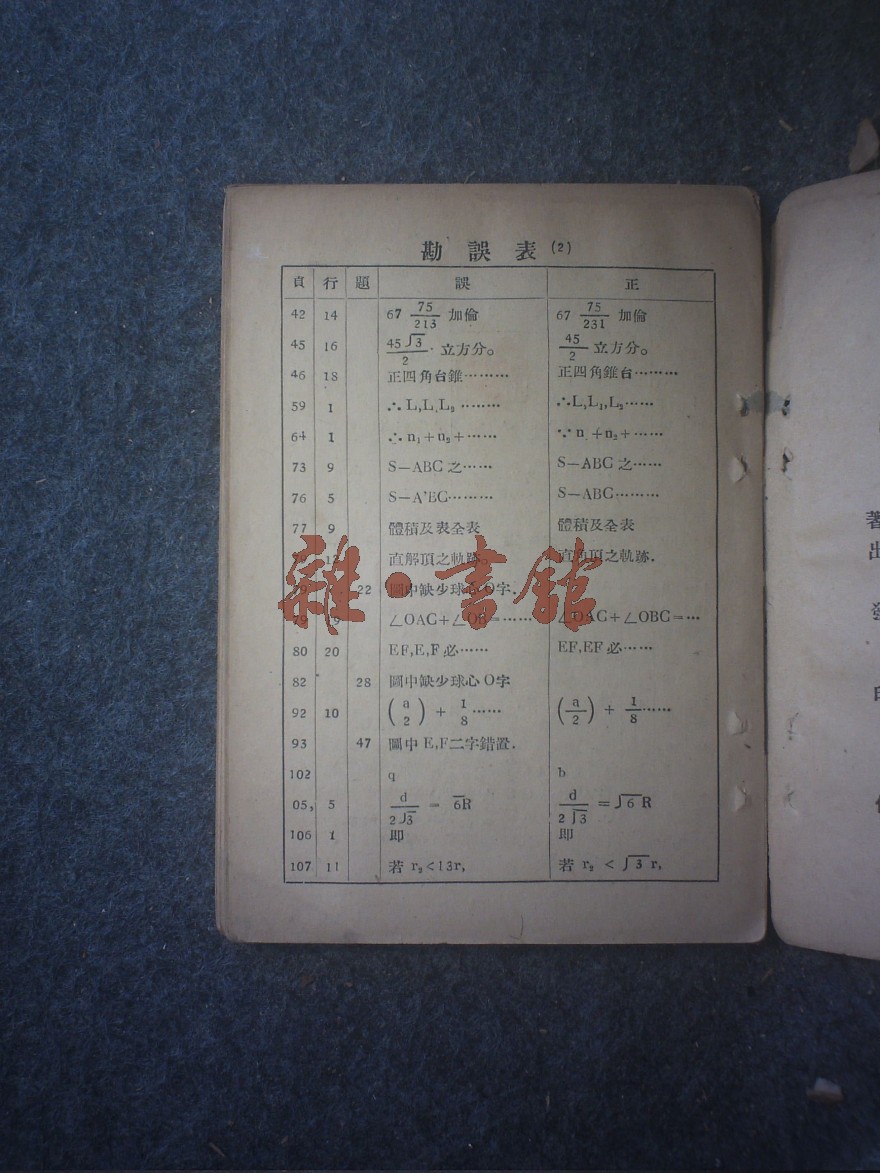 勘誤表(2)
頁 行 題 誤 正
42 14 67 75/213 加倫 67 75/231 加倫
45 16 45√3/2 立方分。 45/2 立方分。
46 18 正四角台錐……… 正四角錐台………
59 1 ∴L,L,L₂ ……… ∴L,L₁,L₂……
64 1 ∴n₁+n₂+…… ∵n +n₂+……
73 9 S—ABC 之…… S—ABC 之……
76 5 S—A'BC……… S—ABC………
77 9 體積及表全表 體積及全表
79 12 直解頂之軌跡。 直角頂之軌跡.
79 22 圖中缺少球心O字.
79 9 ∠OAC+∠OB=…… ∠OAC+∠OBC=…
80 20 EF,E,F必…… EF,EF必……
82 28 圖中缺少球心O字
92 10 (a/2) + 1/8…… (a/2) + 1/8……
93 47 圖中E,F二字錯置.
102 q b
05, 5 d/2√3 = 6R d/2√3 =√6R
106 1 即 即
107 11 若 r₂<13r, 若 r₂ < √3r,
雜·書館
著
出
發
印